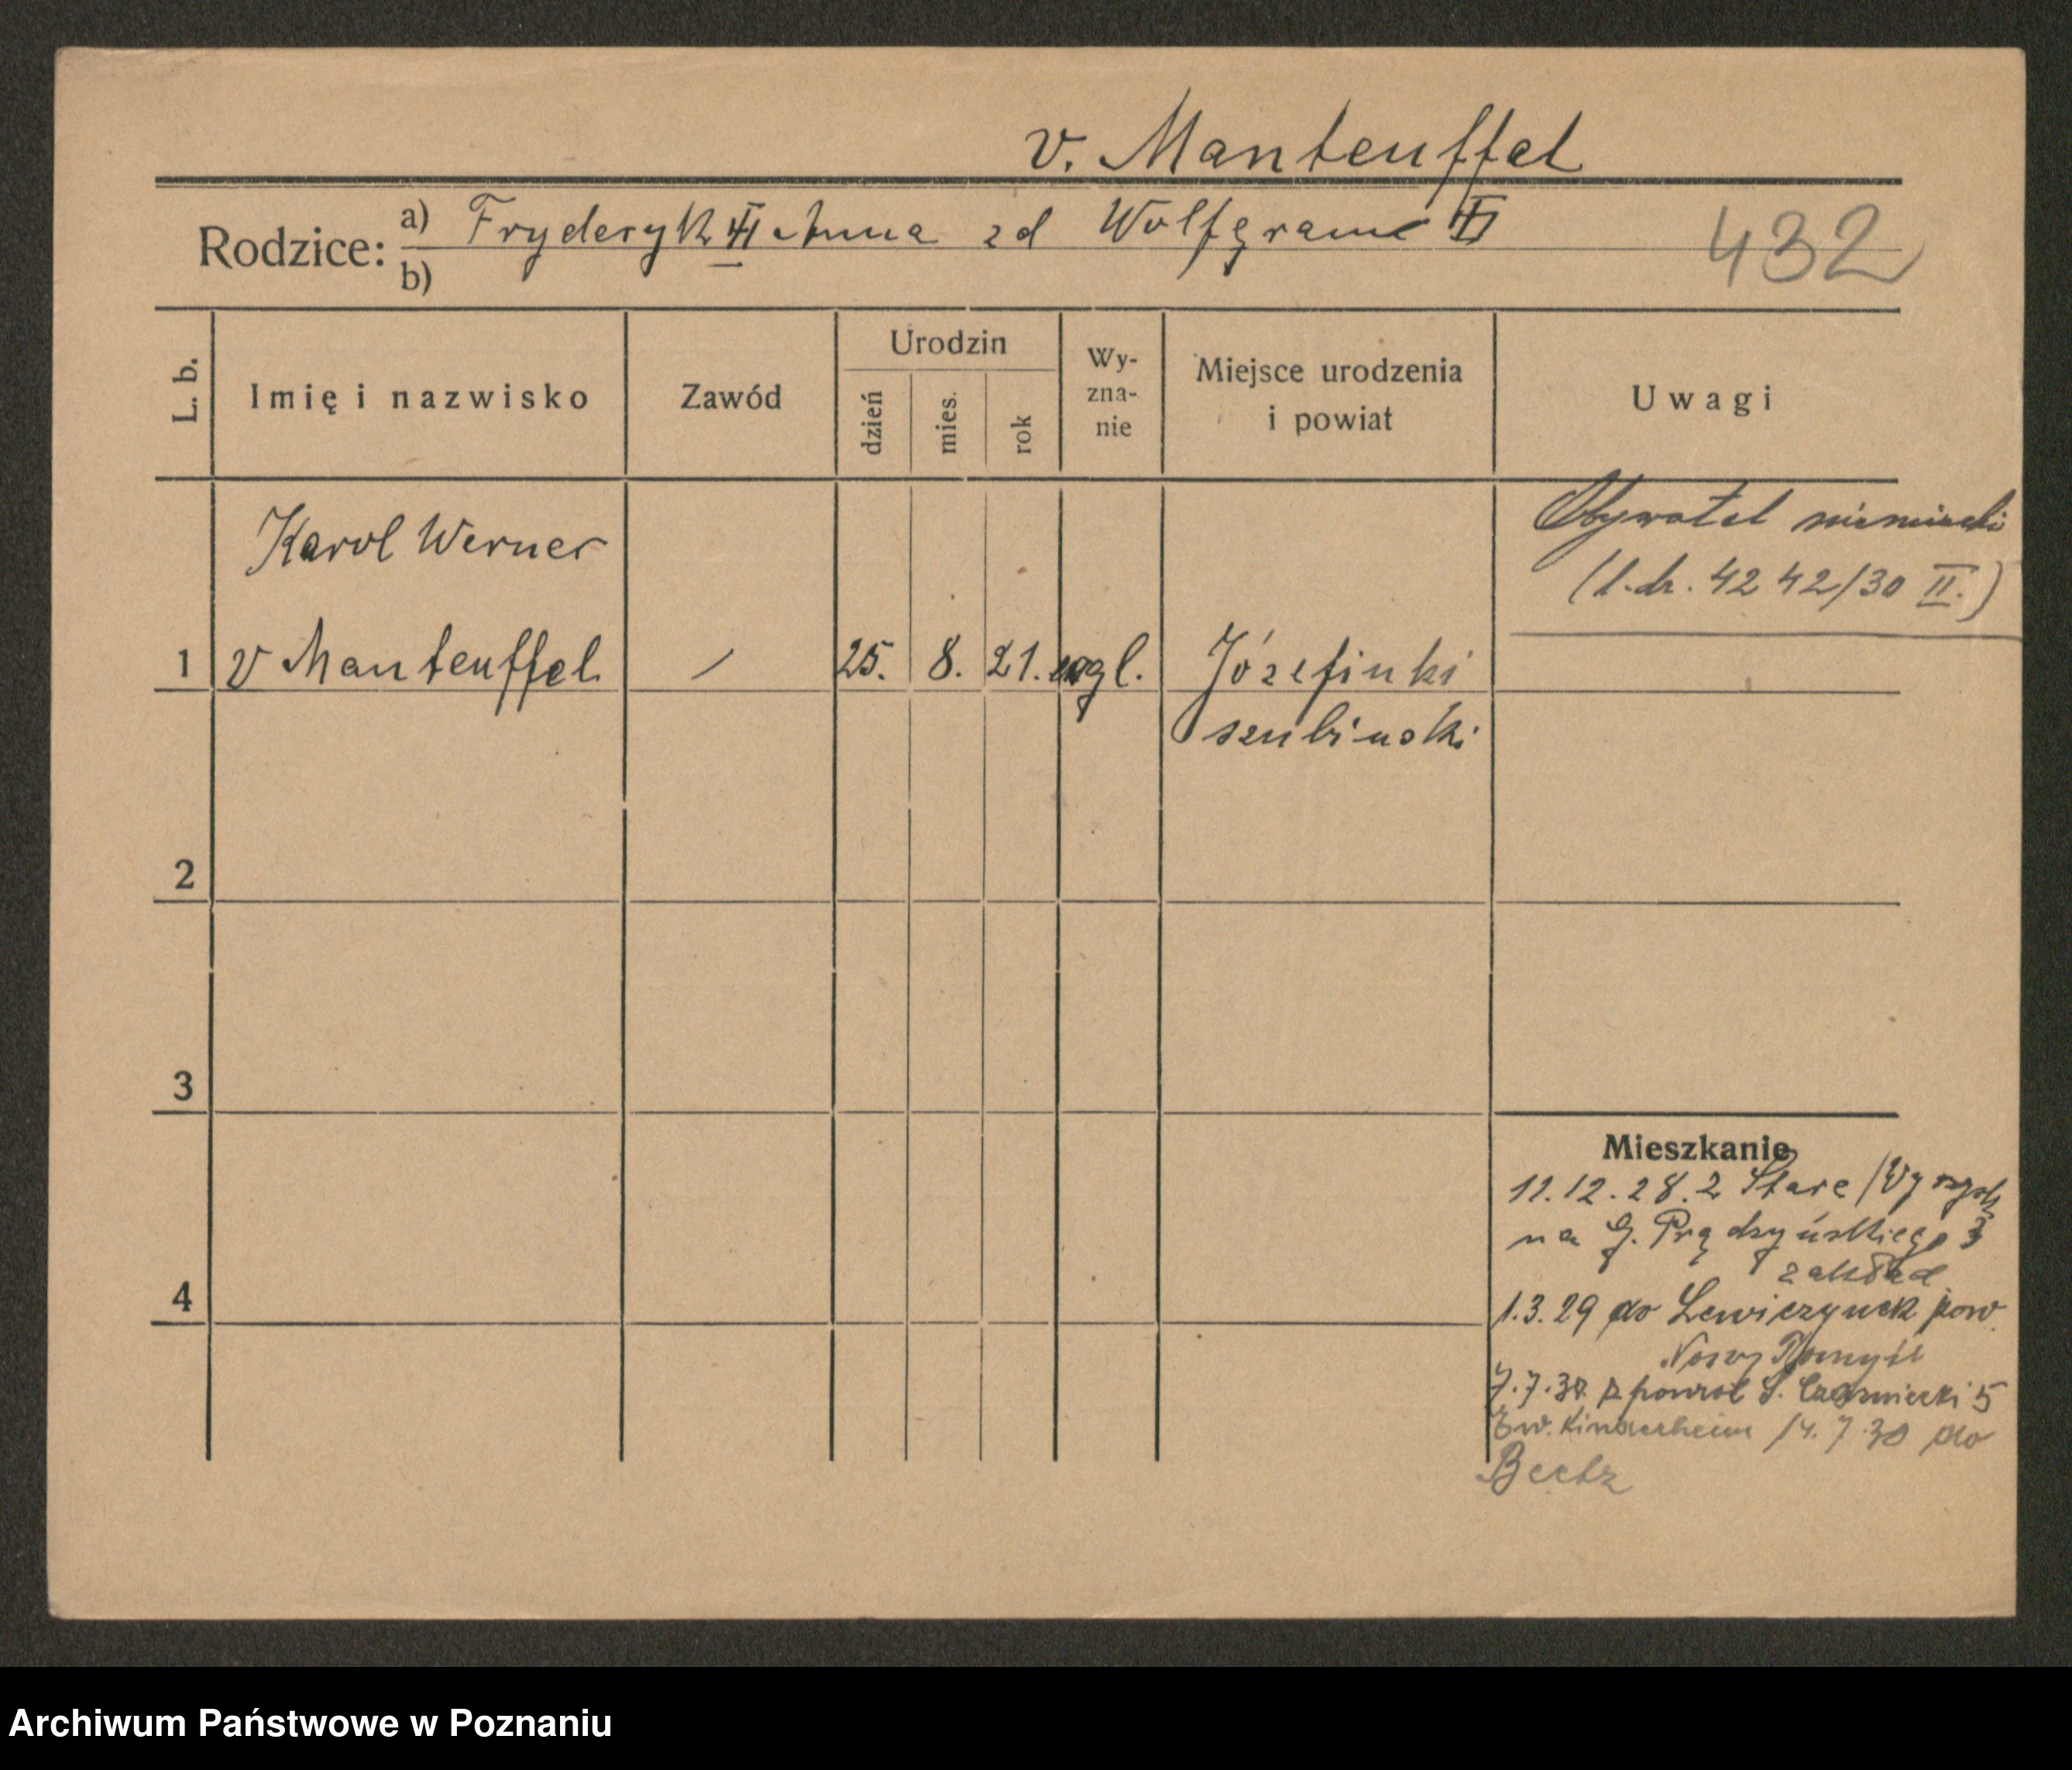 v. Manteuffel
Rodzice: a) Fryderyk Anna zd Wolfgramm
b)
432
L. b.
Imię i nazwisko
Zawód
Urodzin
dzień
mies.
rok
Wy-
zna-
nie
Miejsce urodzenia
i powiat
Uwagi
Karol Werner
1 v Manteuffel / 25. 8. 21. ewgl. Józefinki
szubinski
Obywatel niemiecki
(l.dz. 4242/30 II.)
2
3
4
Mieszkanie
11.12.28. z Stare /Wyrzysk
na G. Prądzyńskiego 3
zakład
1.3.29 do Lewiczynek pow.
Nowy Tomyśl
7.7.30 z powrot S. Czarniecki 5
Ew. Kinderheim 14.7.30 do
Archiwum Państwowe w Poznaniu